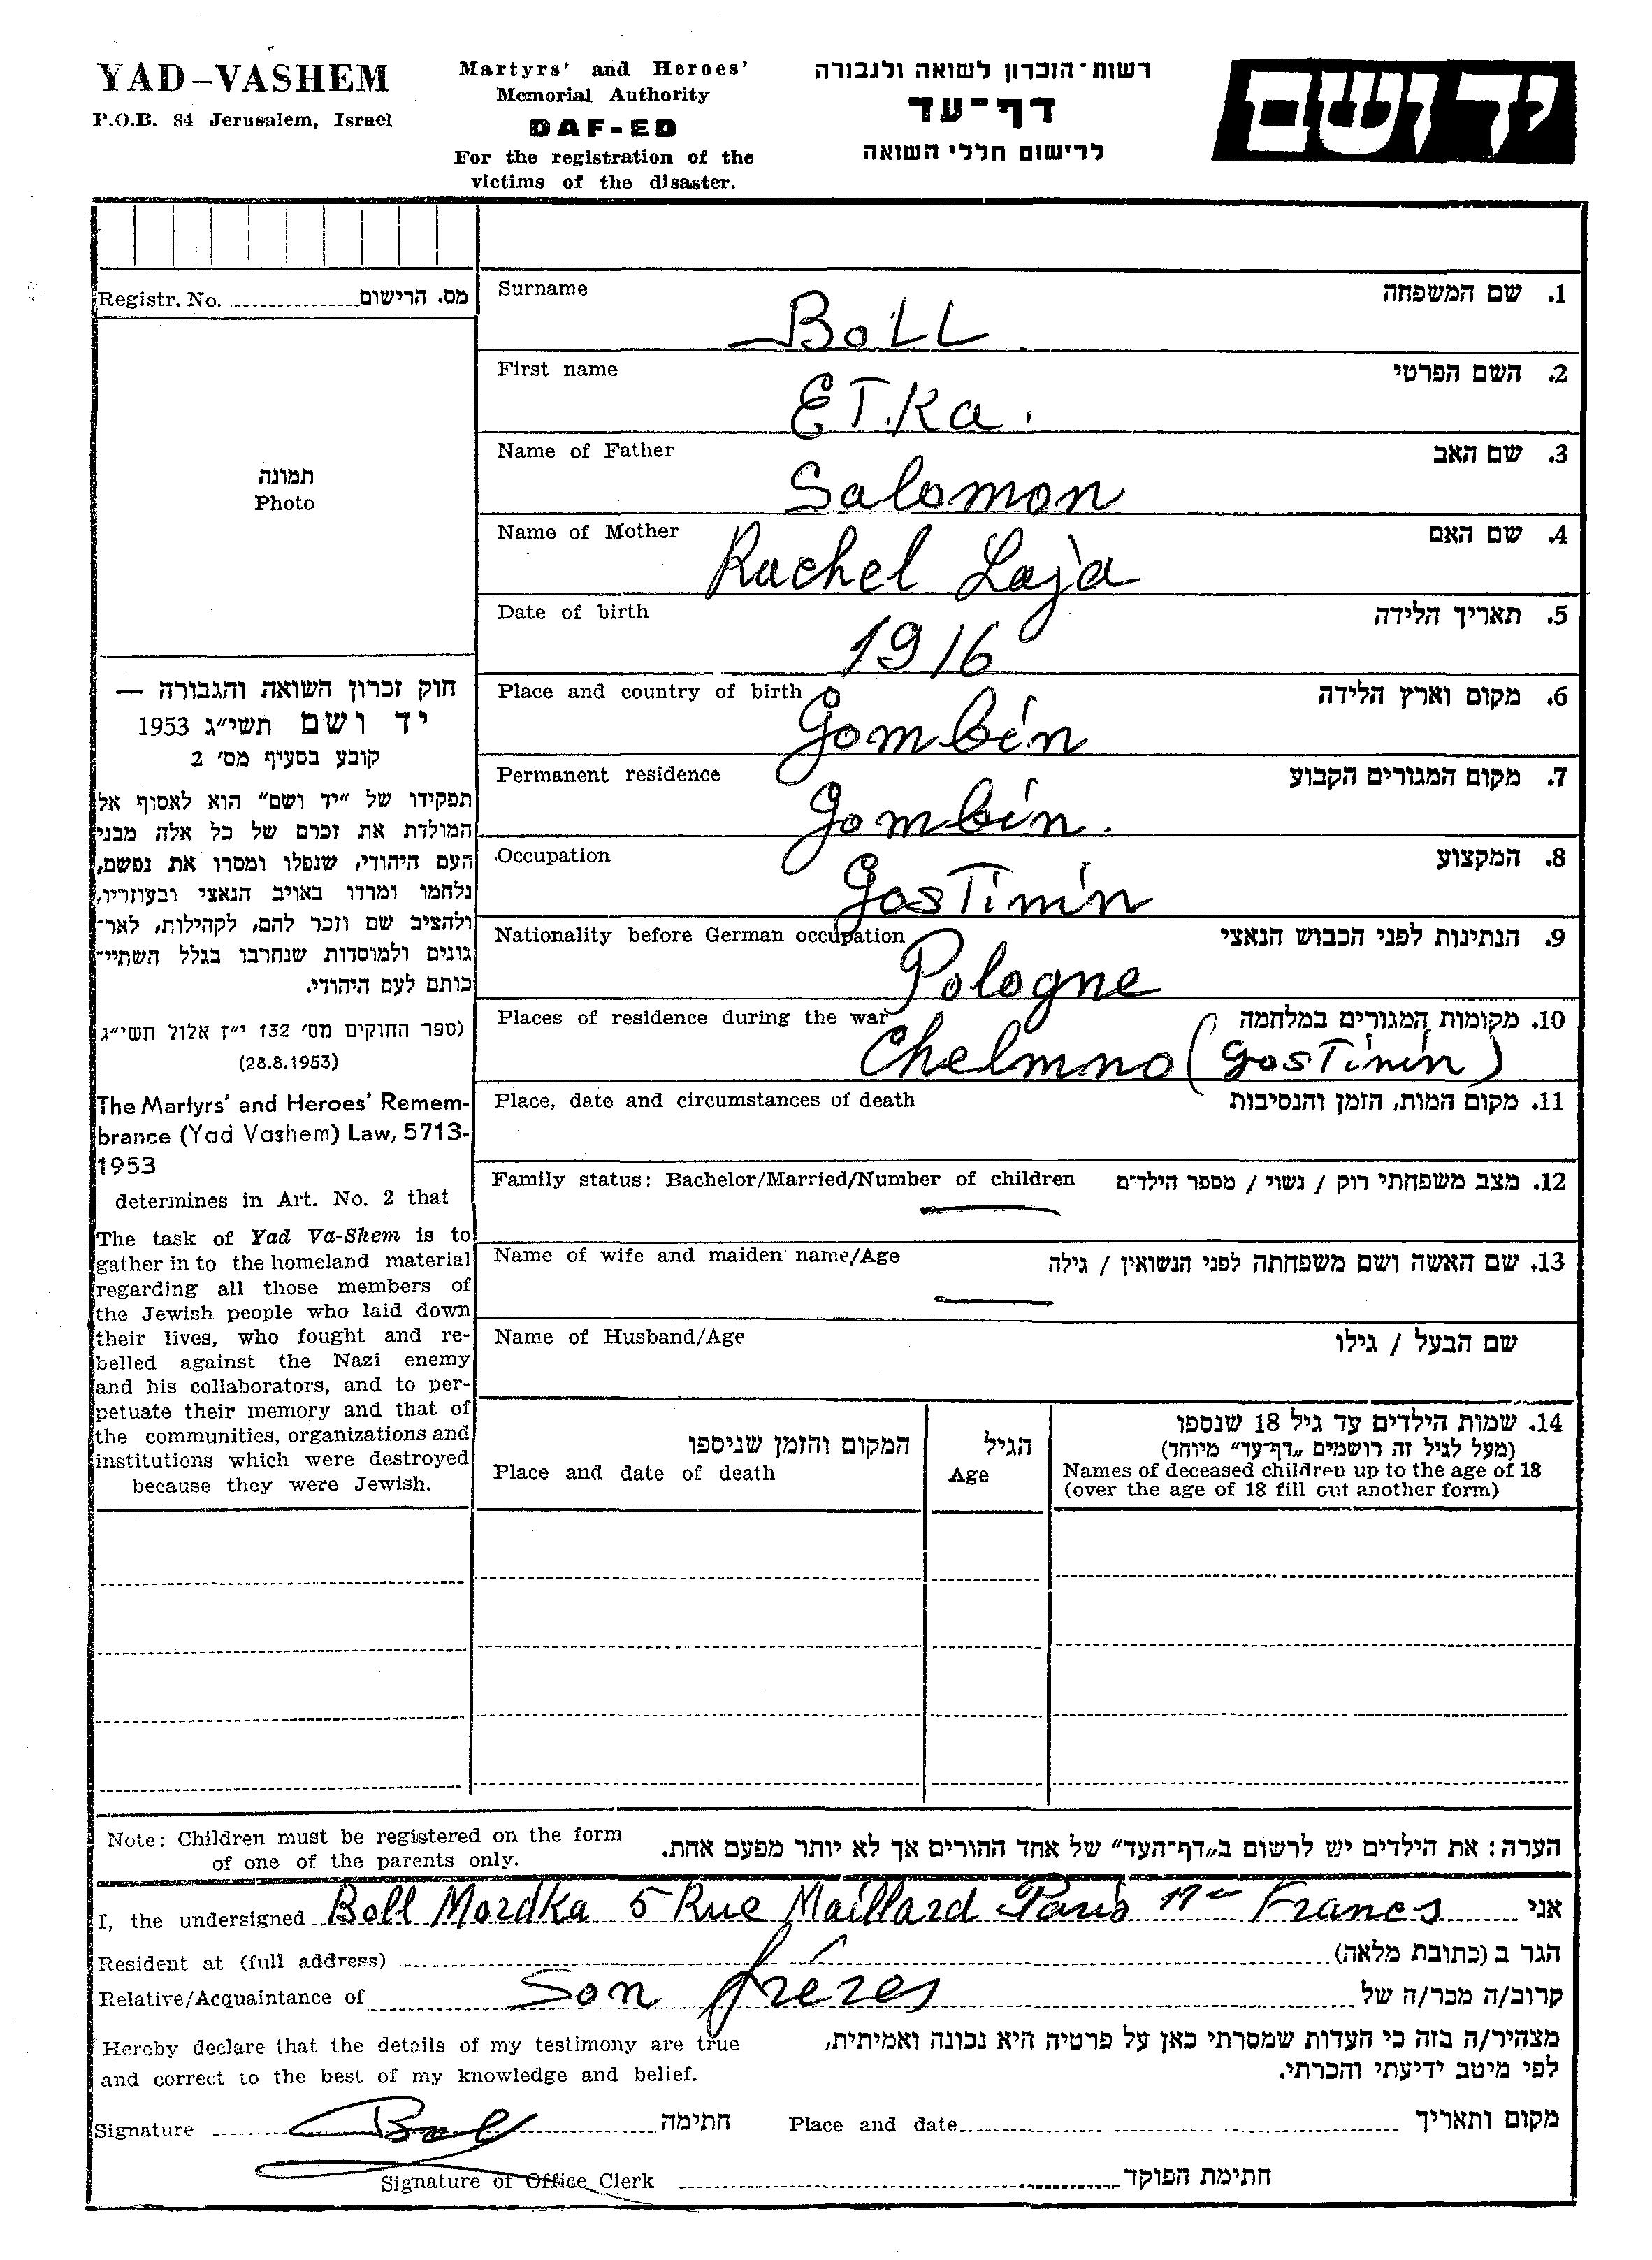 YAD-VASHEM
P.O.B. 84 Jerusalem, Israel
Martyrs' and Heroes'
Memorial Authority
DAF-ED
For the registration of the
victims of the disaster.
רשות־הזכרון לשואה ולגבורה
דף־עד
לרישום חללי השואה
יד ושם
Registr. No. מס. הרישום
תמונה
Photo
חוק זכרון השואה והגבורה —
יד ושם תשי״ג 1953
קובע בסעיף מס׳ 2
תפקידו של ״יד ושם״ הוא לאסוף אל
המולדת את זכרם של כל אלה מבני
העם היהודי, שנפלו ומסרו את נפשם,
נלחמו ומרדו באויב הנאצי ובעוזריו,
ולהציב שם וזכר להם, לקהילות, לאר־
גונים ולמוסדות שנחרבו בגלל השתיי־
כותם לעם היהודי.
(ספר החוקים מס׳ 132 י״ז אלול תשי״ג
(28.8.1953)
The Martyrs' and Heroes' Remem-
brance (Yad Vashem) Law, 5713-
1953
determines in Art. No. 2 that
The task of Yad Va-Shem is to
gather in to the homeland material
regarding all those members of
the Jewish people who laid down
their lives, who fought and re-
belled against the Nazi enemy
and his collaborators, and to per-
petuate their memory and that of
the communities, organizations and
institutions which were destroyed
because they were Jewish.
Surname 1. שם המשפחה
BoLL
First name 2. השם הפרטי
ETKa.
Name of Father 3. שם האב
Salomon
Name of Mother 4. שם האם
Rachel Laja
Date of birth 5. תאריך הלידה
1916
Place and country of birth 6. מקום וארץ הלידה
Gombin
Permanent residence 7. מקום המגורים הקבוע
Gombin.
Occupation 8. המקצוע
GosTinin
Nationality before German occupation 9. הנתינות לפני הכבוש הנאצי
Pologne
Places of residence during the war 10. מקומות המגורים במלחמה
Chelmno (GosTinin)
Place, date and circumstances of death 11. מקום המות, הזמן והנסיבות
Family status: Bachelor/Married/Number of children 12. מצב משפחתי רוק / נשוי / מספר הילדים
Name of wife and maiden name/Age 13. שם האשה ושם משפחתה לפני הנשואין / גילה
Name of Husband/Age שם הבעל / גילו
המקום והזמן שניספו
Place and date of death
הגיל
Age
14. שמות הילדים עד גיל 18 שנספו
(מעל לגיל זה רושמים ״דף־עד״ מיוחד)
Names of deceased children up to the age of 18
(over the age of 18 fill out another form)
Note: Children must be registered on the form
of one of the parents only.
הערה: את הילדים יש לרשום ב״דף־העד״ של אחד ההורים אך לא יותר מפעם אחת.
I, the undersigned Boll Mordka 5 Rue Maillard Paris 11e France אני
Resident at (full address) הגר ב (כתובת מלאה)
Relative/Acquaintance of Son fréres קרוב/ה מכר/ה של
Hereby declare that the details of my testimony are true
and correct to the best of my knowledge and belief.
מצהיר/ה בזה כי העדות שמסרתי כאן על פרטיה היא נכונה ואמיתית,
לפי מיטב ידיעתי והכרתי.
Signature Boll חתימה Place and date מקום ותאריך
Signature of Office Clerk חתימת הפוקד